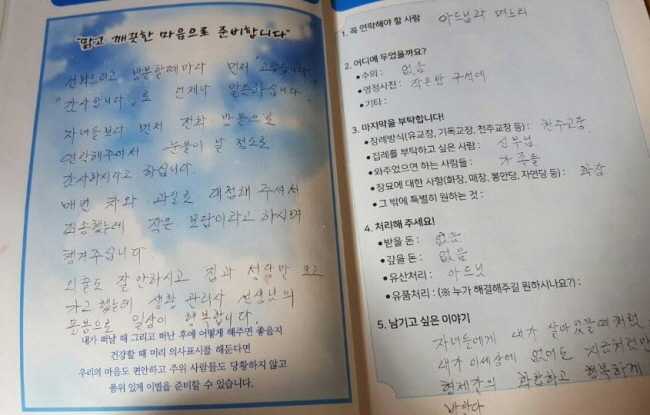 "맑고 깨끗한 마음으로 준비합니다"
전화드리고 방문할때마다 먼저 "고맙습니다,
"감사합니다"로 언제나 말씀하십니다.
자녀들보다 먼저 전화 방문으로
연락해주어서 눈물이 날 정도로
감사하시다고 하십니다.
매번 차와 과일로 대접해 주셔서
죄송했는데 작은 보답이라고 하시며
챙겨주십니다.
외출도 잘 안하시고 집과 성당만 오고
가고 했는데 생활 관리사 선생님의
돌봄으로 일상이 행복합니다.
내가 떠날 때 그리고 떠난 후에 어떻게 해주면 좋을지
건강할 때 미리 의사표시를 해둔다면
우리의 마음도 편안하고 주위 사람들도 당황하지 않고
품위 있게 이별을 준비할 수 있습니다.
1. 꼭 연락해야 할 사람 아드님과 며느리
2. 어디에 두었을까요?
• 수의 : 없음
• 영정사진 : 작은방 구석에
• 기타 :
3. 마지막을 부탁합니다!
• 장례방식(유교장, 기독교장, 천주교장 등) : 천주교장
• 집례를 부탁하고 싶은 사람 : 신부님
• 와주었으면 하는 사람들 : 가족들
• 장묘에 대한 사항(화장, 매장, 봉안당, 자연당 등) : 화장
• 그 밖에 특별히 원하는 것 :
4. 처리해 주세요!
• 받을 돈 : 없음
• 갚을 돈 : 없음
• 유산처리 : 아드님
• 유품처리 : (※ 누가 해결해주길 원하시나요?) :
5. 남기고 싶은 이야기
자녀들에게 내가 살아 있을때처럼
내가 이세상에 없어도 지금처럼만
형제간의 화합하고 행복하게
바란다